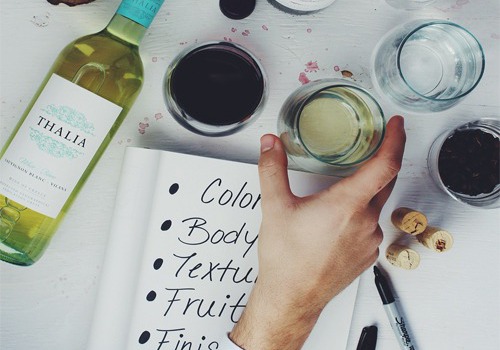 THALIA
SAUVIGNON BLANC - VILANA
Color
Body
Textu
Fruit
Finis
Sharpie